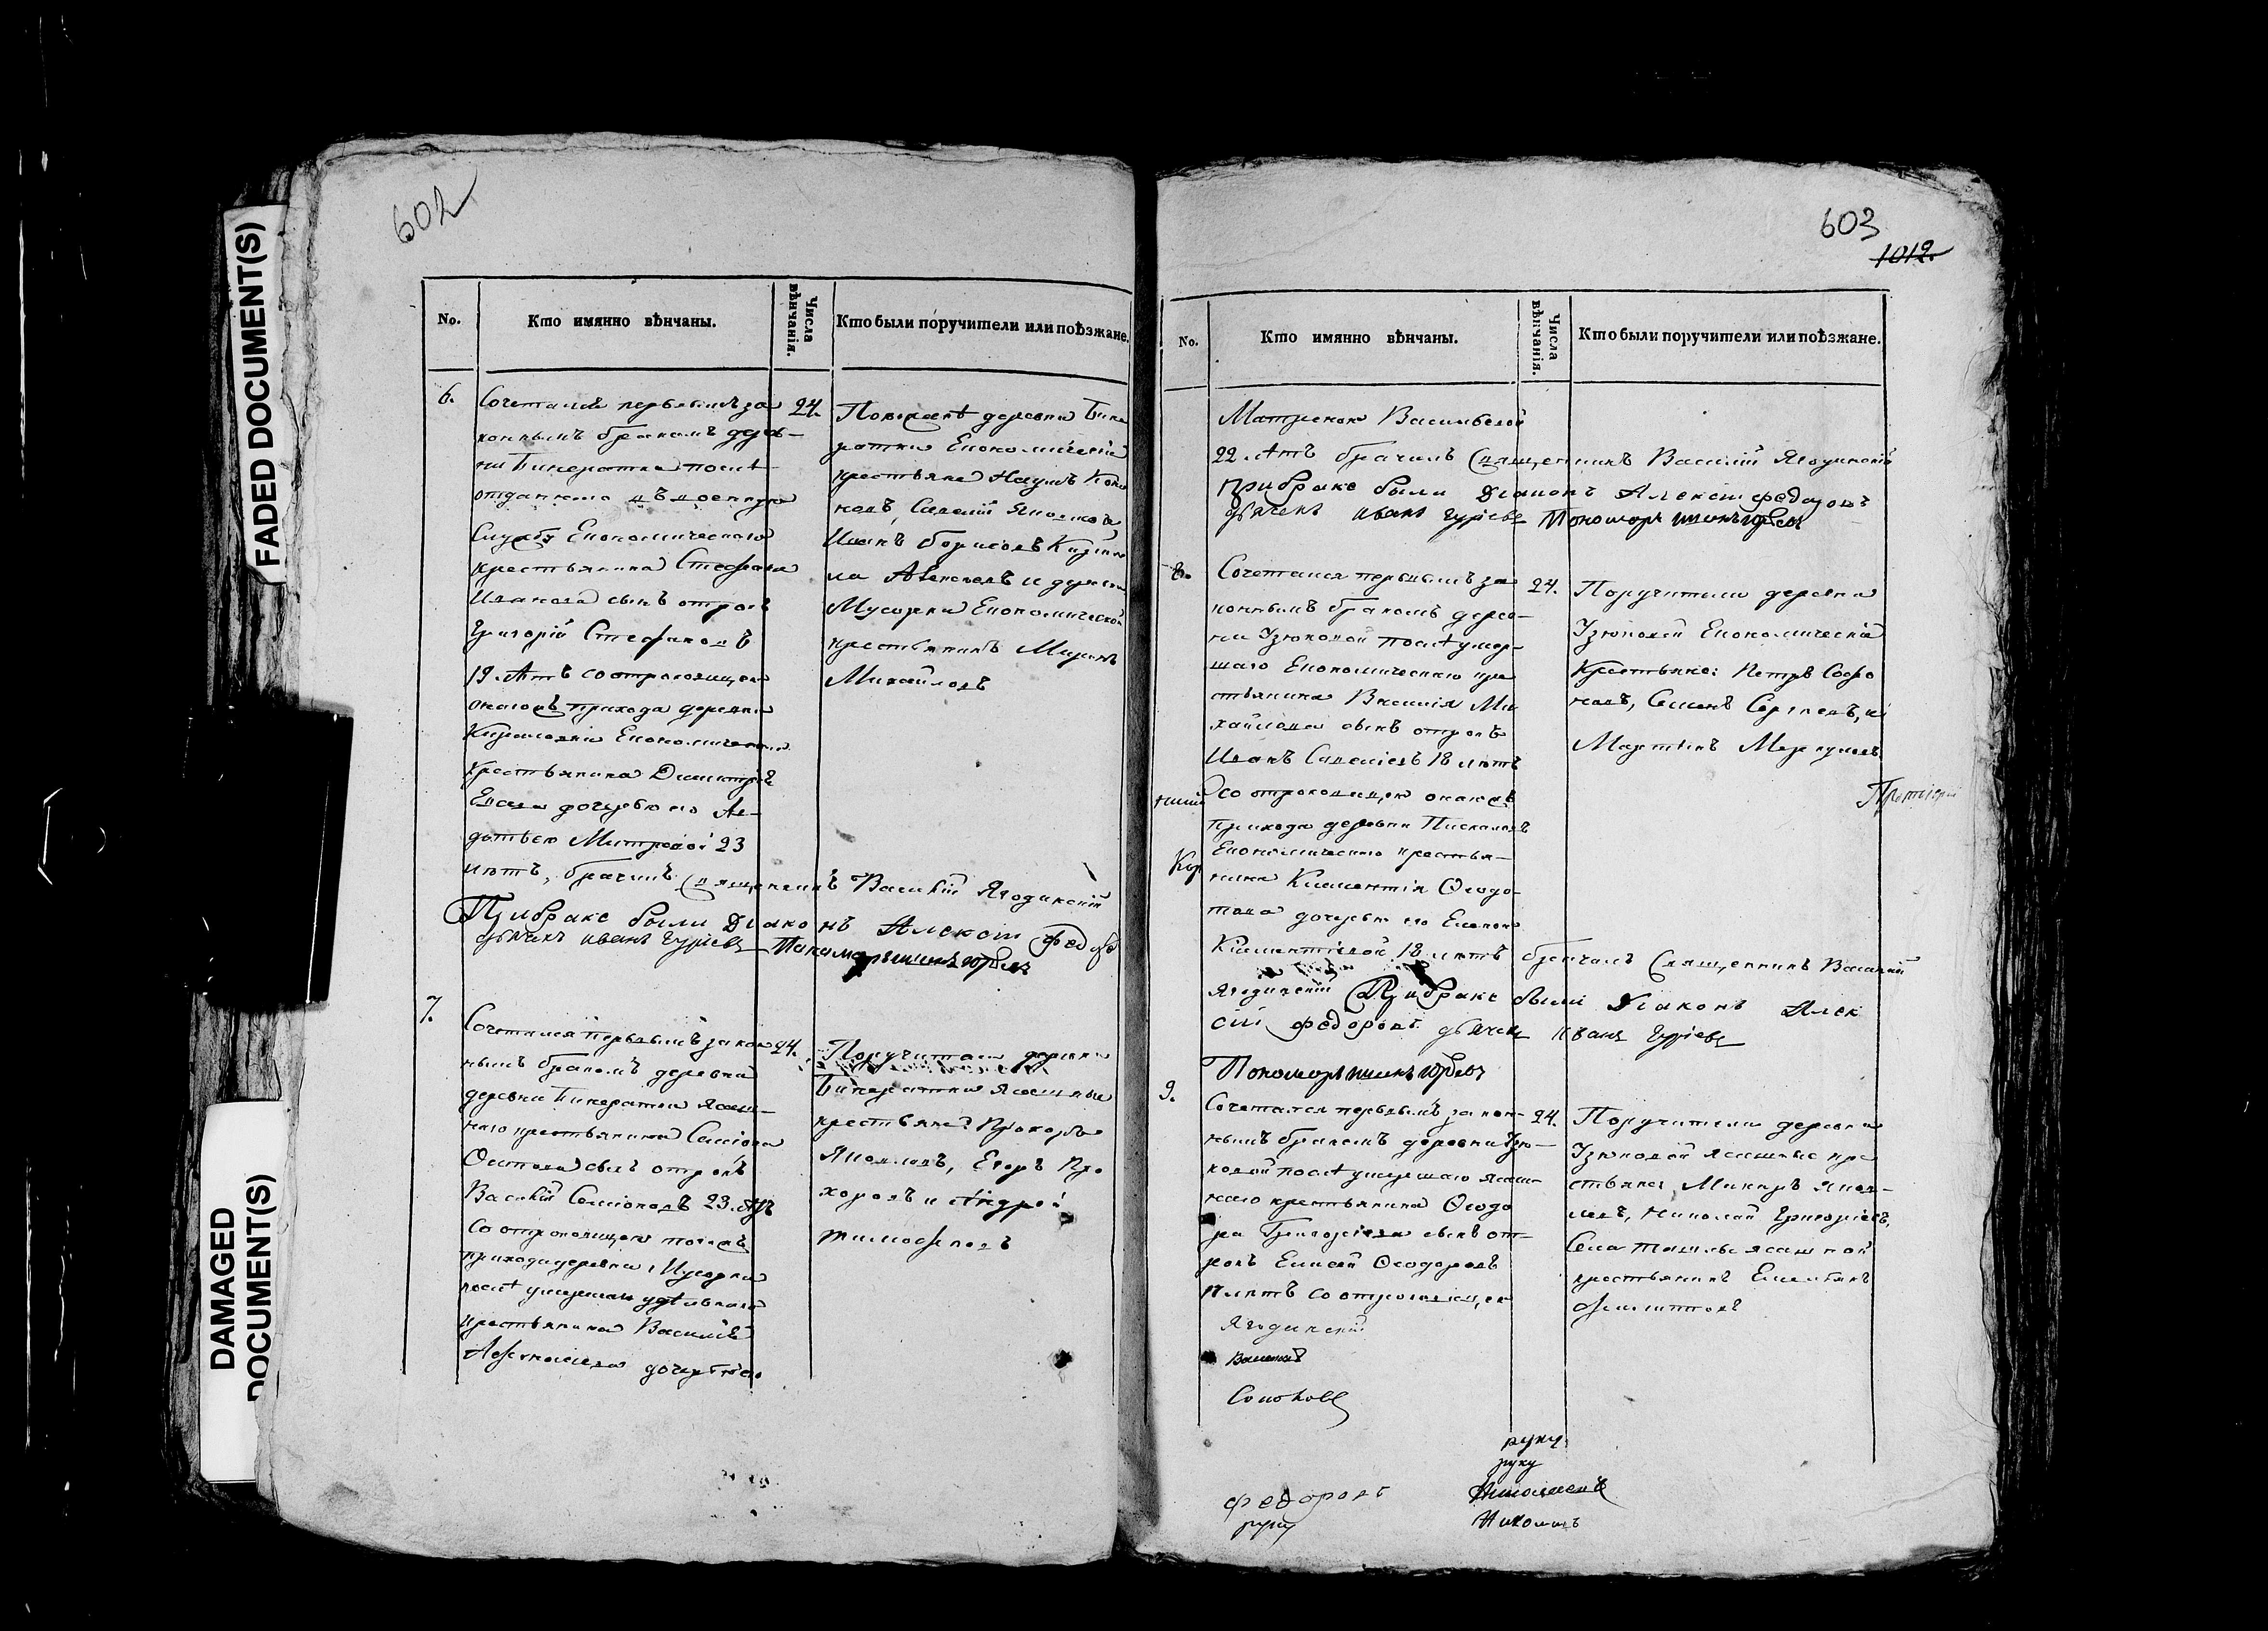 FADED DOCUMENT(S)
DAMAGED
DOCUMENT(S)
602
No.
Кто имянно вѣнчаны.
Числа
вѣнчанія.
Кто были поручители или поѣзжане.
6.
Сочетался первымъ за
коннымъ бракомъ дерев-
ни Бикератки послѣ
отданнаго въ военную
Службу Економическаго
крестьянина Стефана
Иванова сынъ отрокъ
Григорій Стефановъ
19. лѣтъ со отроковицею
онагожъ прихода деревни
Економическаго
крестьянина Димитрія
дочерью его Ав-
дотьею Митревой 23
лѣтъ, брачилъ Священникъ Василій Ягодинскій
При браке были Діаконъ Алексѣй Федоро
дьячекъ иванъ гурьевъ Пономарь
24.
деревни Бике
ратки Економическіе
крестьяне Наумъ Коно
новъ, Савелій Яковлевъ
Иванъ Борисовъ Кирил
ла Алексеевъ и деревни
Мусорки Економической
крестьянинъ Миронъ
Михайловъ
7.
Сочетался первымъ закон
нымъ бракомъ деревни
деревни Бикератки ясаш-
наго крестьянина Семіона
Осипова сынъ отрокъ
Василій Семіоновъ 23. лѣтъ
Со отроковицею тогожъ
прихода деревни Мусорки
послѣ умершаго удѣльнаго
крестьянина Василья
Афанасьева дочерью его
24.
Поручители деревни
Бикератки Ясашные
крестьяне Прохоръ
Яковлевъ, Егоръ Про
хоровъ и Андрей
тимофеевъ
603
1012.
No.
Кто имянно вѣнчаны.
Числа
вѣнчанія.
Кто были поручители или поѣзжане.
Матреною Васильевой
22. лѣтъ брачилъ Священникъ Василій Ягодинскій
при браке были Діаконъ Алексѣй федоровъ
дьячекъ иванъ гурьевъ Пономарь
8.
Сочетался первымъ за
коннымъ бракомъ дерев-
ни Узюковой послѣ умер-
шаго Економическаго кре
стьянина Василія Ми
хайлова сынъ отрокъ
Иванъ 18 лѣтъ
со отроковицею онагожъ
прихода деревни Пискаловъ
Економическаго крестья-
нина Климентія Ѳеодо
това дочерью его Еленою
Климентіевой 18 лѣтъ брачилъ Священникъ Василій
Ягодинскій При браке были Діаконъ Алек
сій федоровъ дьячекъ Иванъ Гурьевъ
Пономарь
24.
Поручители деревни
Узюковой Економическіе
Крестьяне: Петръ Софо
новъ, Семенъ Сергеевъ, и
Мартынъ Меркуловъ
9.
Сочетался первымъ закон-
нымъ бракомъ деревни Узю-
ковой послѣ умершаго ясаш-
наго крестьянина Ѳеодо
ра Григорьева сынъ от-
рокъ Елисей Ѳеодоровъ
лѣтъ со отроковицею
24.
Поручители деревни
Узюковой ясашные кре
стьяне, Макаръ Яков-
левъ, Николай Григорьевъ,
Села ясашной
крестьянинъ Емельянъ
Филипповъ
Ягодинскій
федоровъ
руку
руку
руку